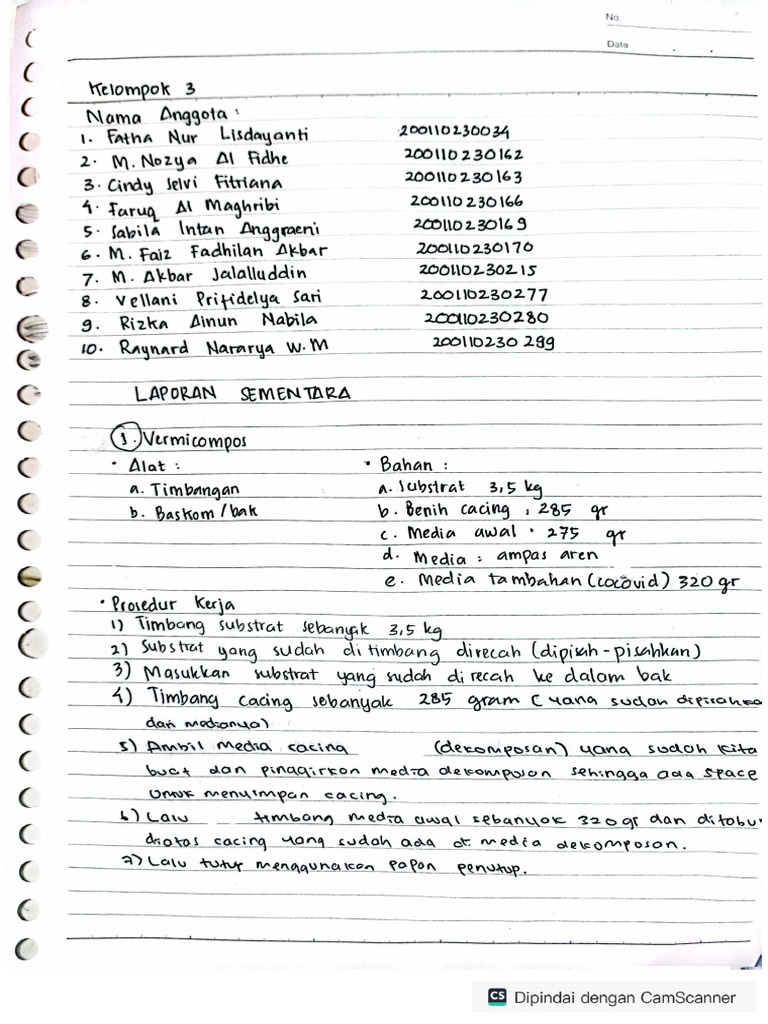 No.
Date
Kelompok 3
Nama Anggota :
1. Fatha Nur Lisdayanti 200110230034
2. M. Nozya Al Fidhe 200110230162
3. Cindy Selvi Fitriana 200110230163
4. Faruq Al Maghribi 200110230166
5. Sabila Intan Anggraeni 200110230169
6. M. Faiz Fadhilan Akbar 200110230170
7. M. Akbar Jalalluddin 200110230215
8. Vellani Prifidelya Sari 200110230277
9. Rizka Ainun Nabila 200110230280
10. Raynard Nararya W.M 200110230299
LAPORAN SEMENTARA
1. Vermicompos
• Alat : • Bahan :
a. Timbangan a. Substrat 3,5 kg
b. Baskom / bak b. Benih cacing : 285 gr
c. Media awal • 275 gr
d. Media : ampas aren
e. Media tambahan (cocovid) 320 gr
• Prosedur Kerja
1) Timbang substrat sebanyak 3,5 kg
2) Substrat yang sudah ditimbang direcah (dipisah-pisahkan)
3) Masukkan substrat yang sudah direcah ke dalam bak
4) Timbang cacing sebanyak 285 gram (yang sudah
dari medianya)
5) Ambil media cacing (dekomposan) yang sudah kita
buat dan pinggirkan media dekomposan sehingga ada space
untuk menyimpan cacing.
6) Lalu timbang media awal sebanyak 320 gr dan ditabur
diatas cacing yang sudah ada di media dekomposan.
7) Lalu tutup menggunakan papan penutup.
CS Dipindai dengan CamScanner